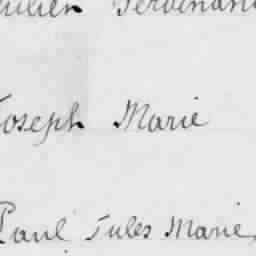 Julien Ferdinand
Joseph Marie
Paul Jules Marie